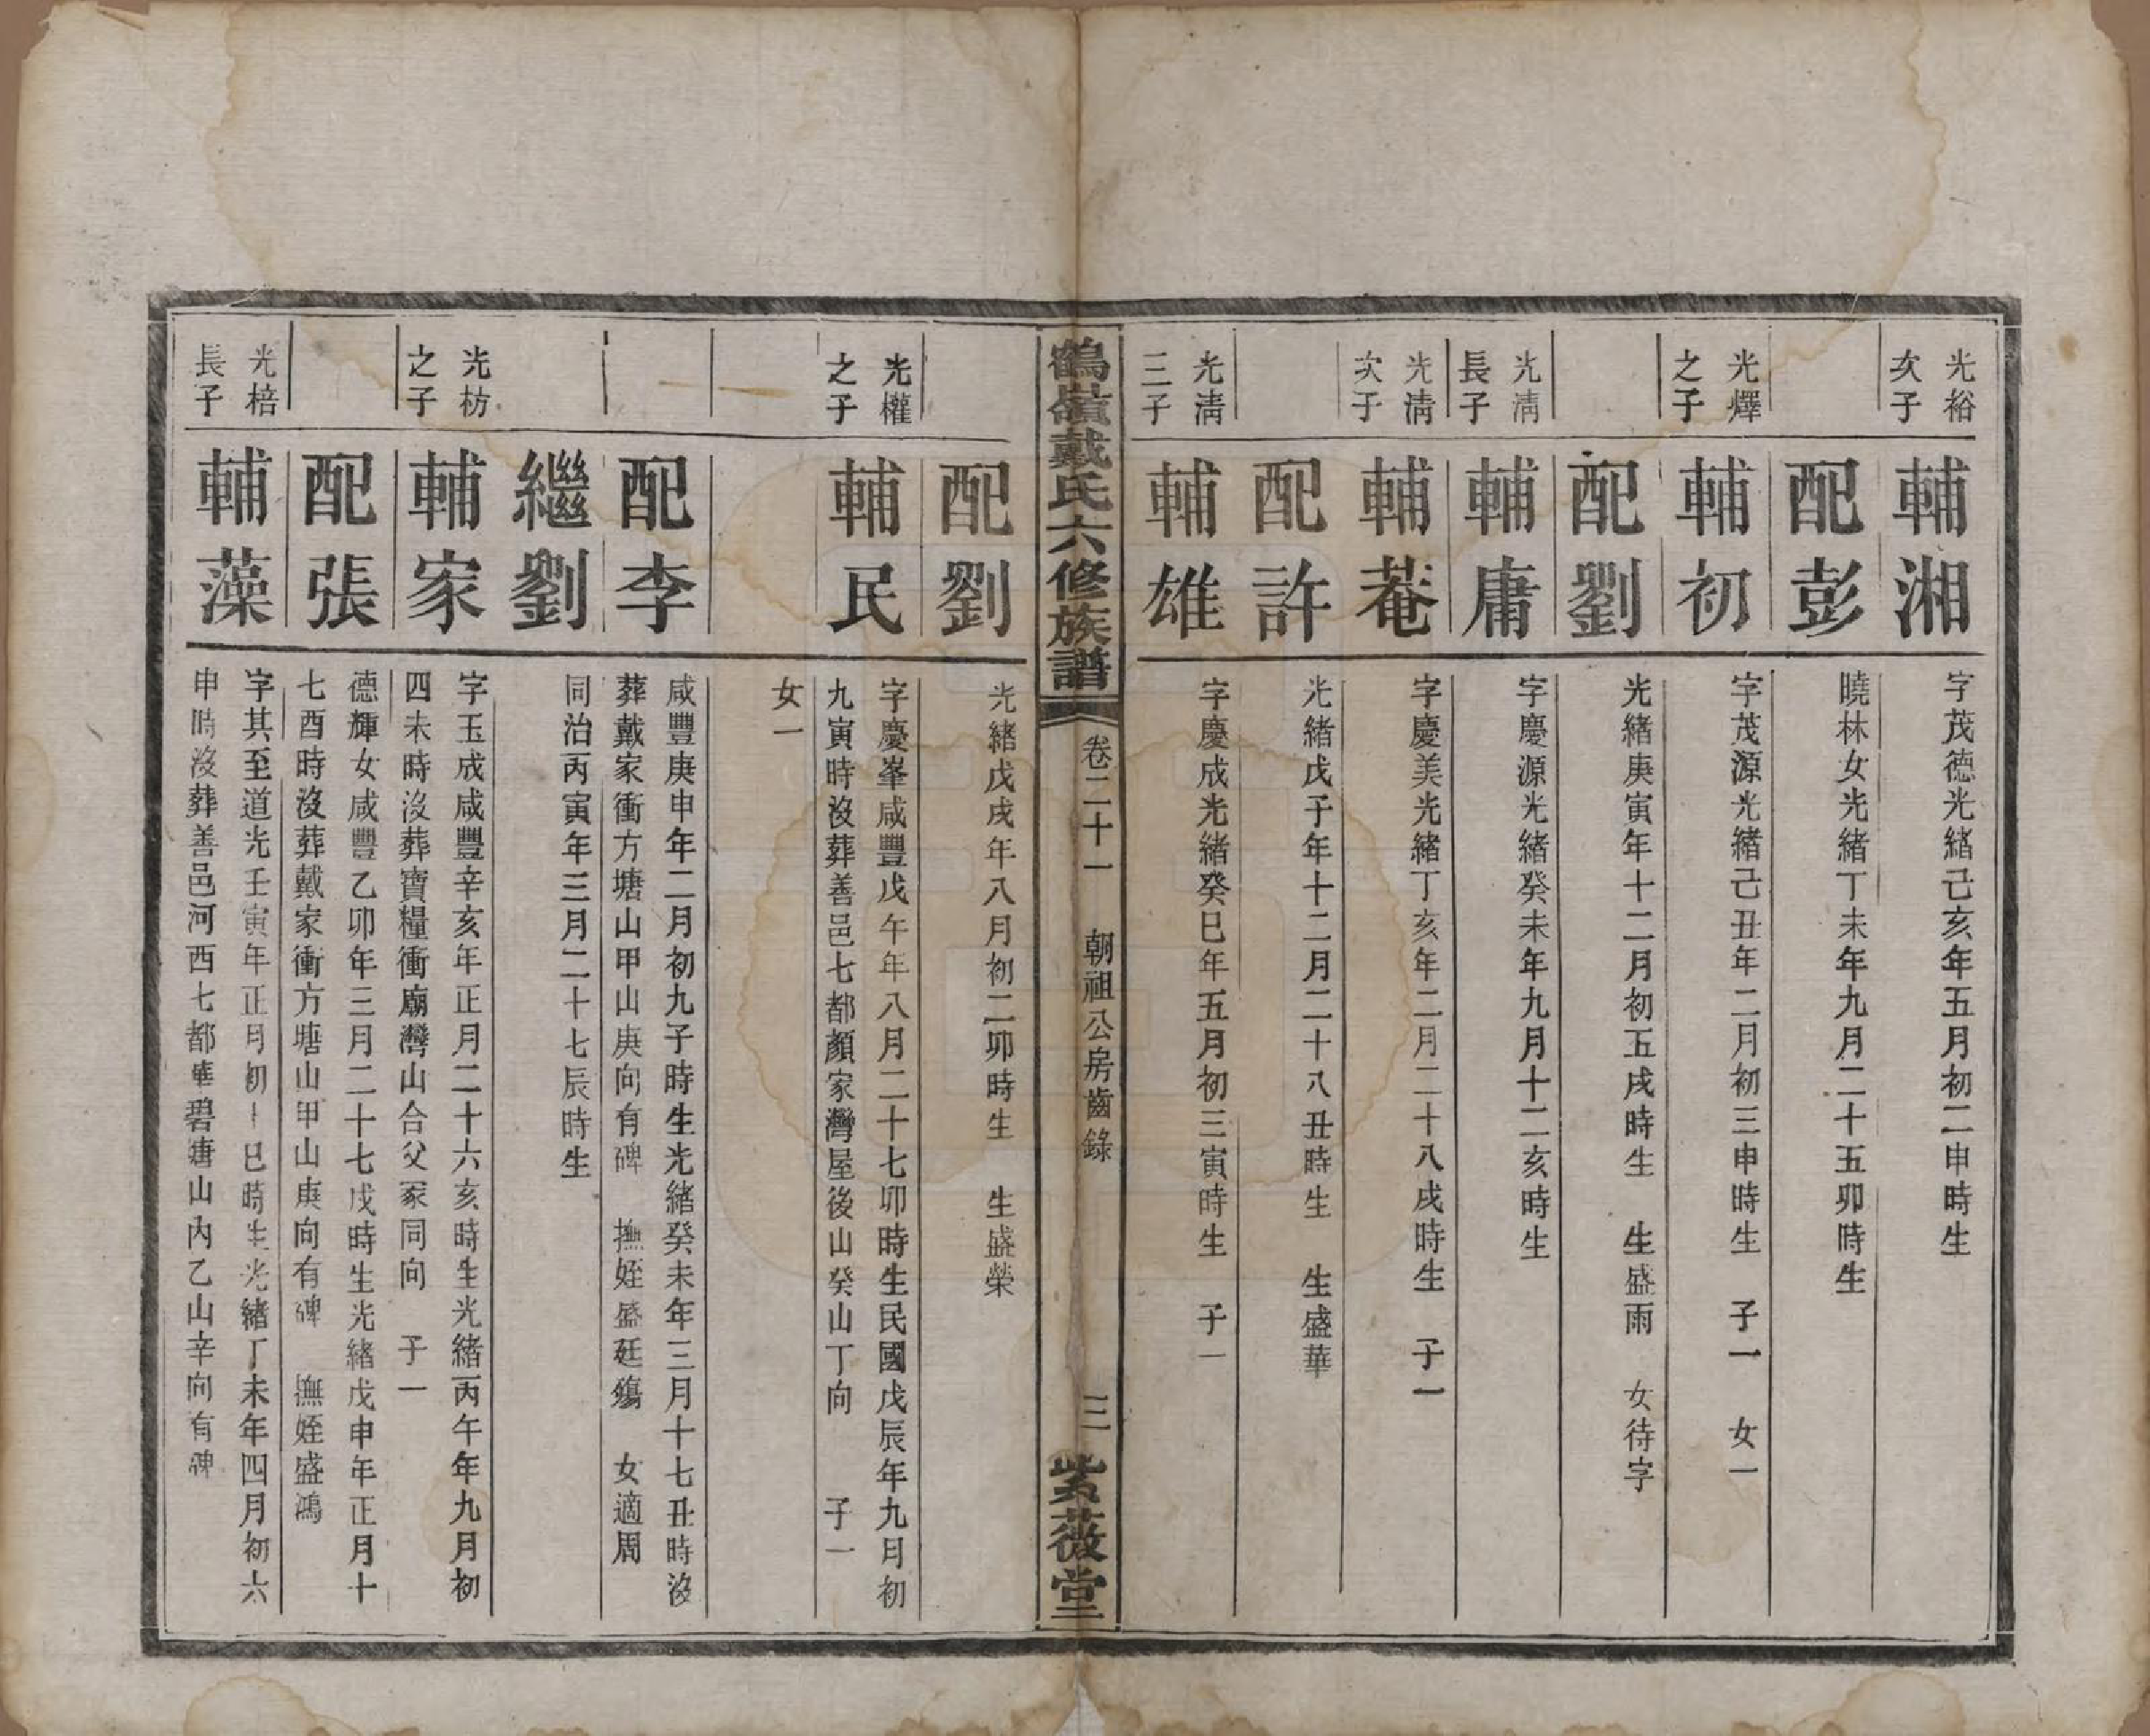 光裕
次子
輔湘
字茂德光緒己亥年五月初二申時生
配彭
曉林女光緒丁未年九月二十五卯時生
光燡
之子
輔初
字茂源光緒己丑年二月初三申時生　子一　女一
配劉
光緒庚寅年十二月初五戌時生　生盛雨　女待字
光淸
長子
輔庸
字慶源光緒癸未年九月十二亥時生
光淸
次子
輔菴
字慶美光緒丁亥年二月二十八戌時生　子一
配許
光緒戊子年十二月二十八丑時生　生盛華
光淸
三子
輔雄
字慶成光緒癸巳年五月初三寅時生　子一
鶴嶺戴氏六修族譜
卷二十一　朝祖公房齒錄
三
紫薇堂
配劉
光緒戊戌年八月初二卯時生　生盛榮
光權
之子
輔民
字慶峯咸豐戊午年八月二十七卯時生民國戊辰年九月初
九寅時沒葬善邑七都顏家灣屋後山癸山丁向　子一
女一
配李
咸豐庚申年二月初九子時生光緒癸未年三月十七丑時沒
葬戴家衝方塘山甲山庚向有碑　撫姪盛廷殤　女適周
繼劉
同治丙寅年三月二十七辰時生
光枋
之子
輔家
字玉成咸豐辛亥年正月二十六亥時生光緒丙午年九月初
四未時沒葬寶糧衝廟灣山合父冢同向　子一
配張
德輝女咸豐乙卯年三月二十七戌時生光緒戊申年正月十
七酉時沒葬戴家衝方塘山甲山庚向有碑　撫姪盛鴻
光棓
長子
輔藻
字其至道光壬寅年正月初巳時生光緒丁未年四月初六
申時沒葬善邑河西七都華碧塘山內乙山辛向有碑